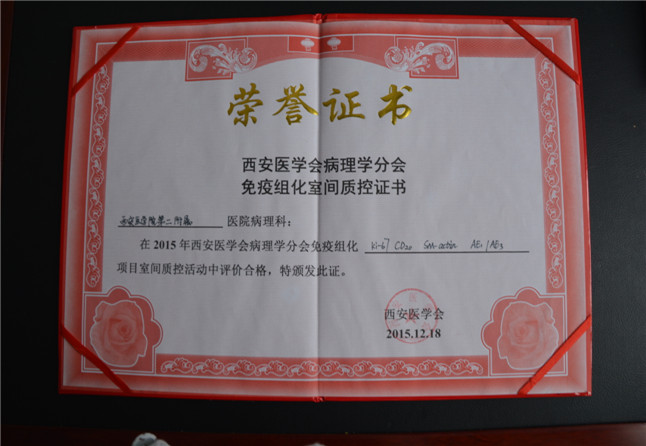 荣誉证书
西安医学会病理学分会
免疫组化室间质控证书
西安医学院第二附属 医院病理科：
在 2015 年西安医学会病理学分会免疫组化 Ki-67 CD20 Sm-actin AE1/AE3
项目室间质控活动中评价合格，特颁发此证。
西安医学会
2015.12.18